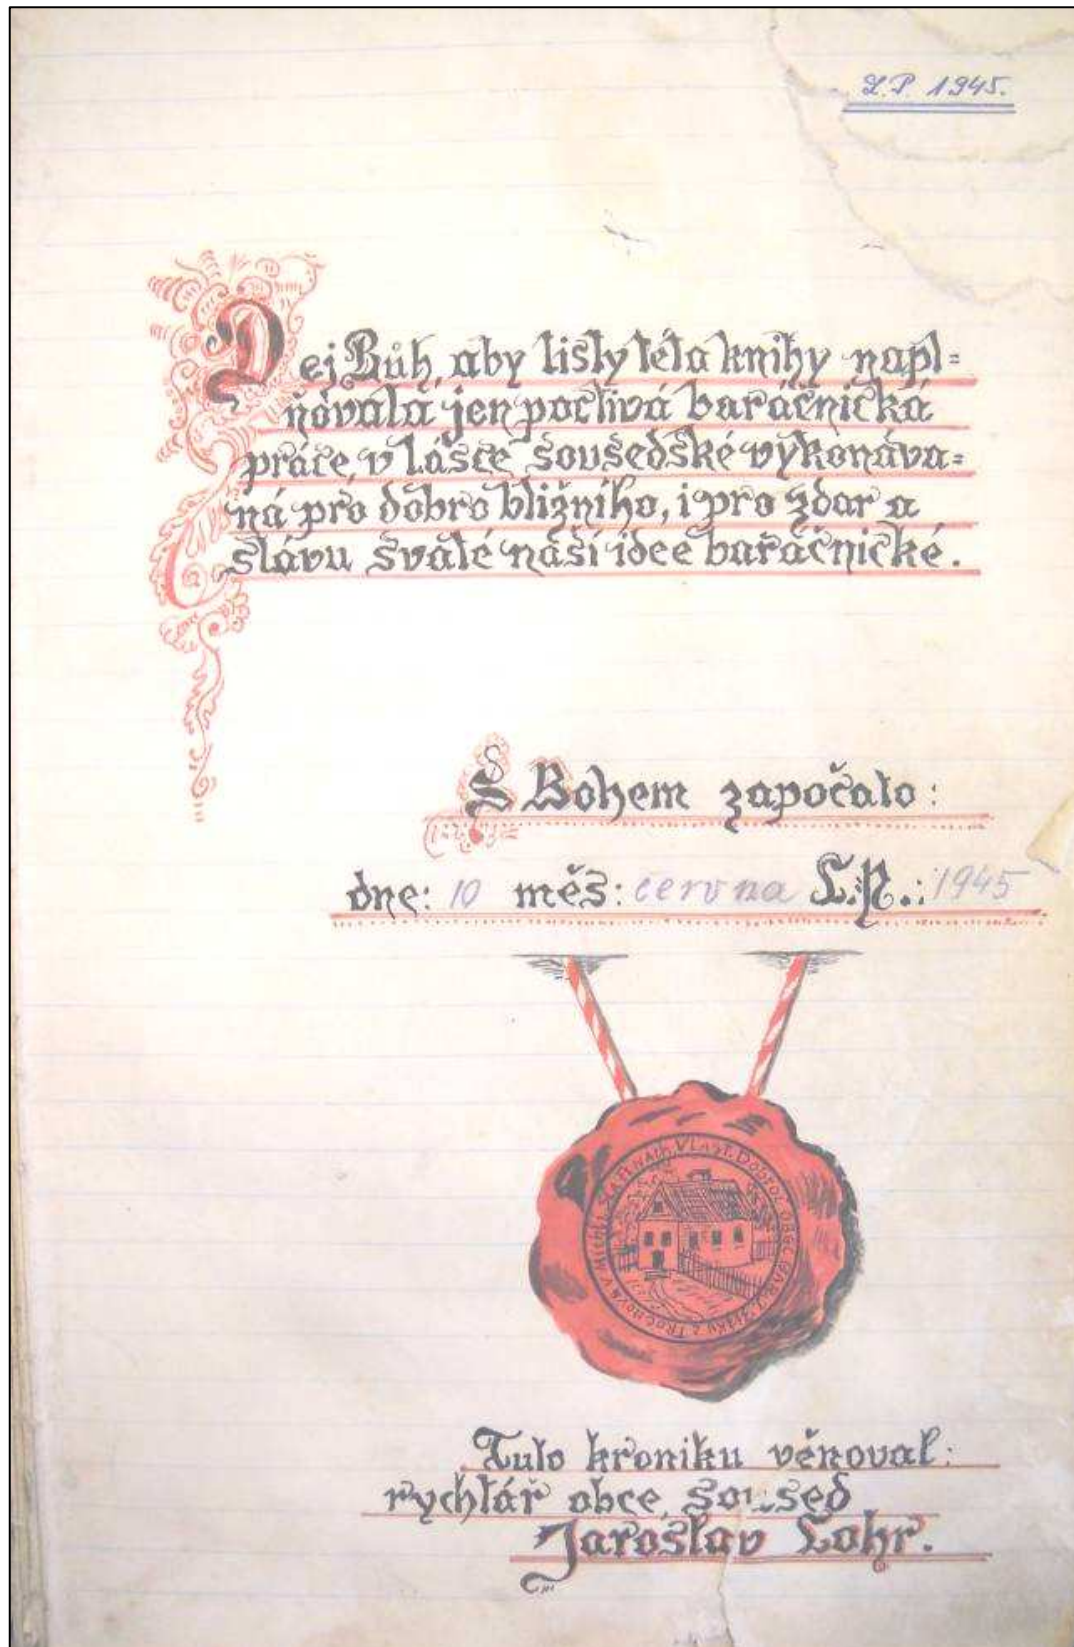 L.P. 1945.
Dej Bůh, aby listy této knihy napl=
ňovala jen poctivá baráčnická
práce, v lásce sousedské vykonáva=
ná pro dobro bližního, i pro zdar a
slávu svaté naší idee baráčnické.
S Bohem započato:
dne: 10 měs: června L.P.: 1945
Vlast. Dobroč. Obec Bar. J. Žižky z Trocnova v Michli
Tuto kroniku věnoval:
rychtář obce, soused
Jaroslav Lohr.